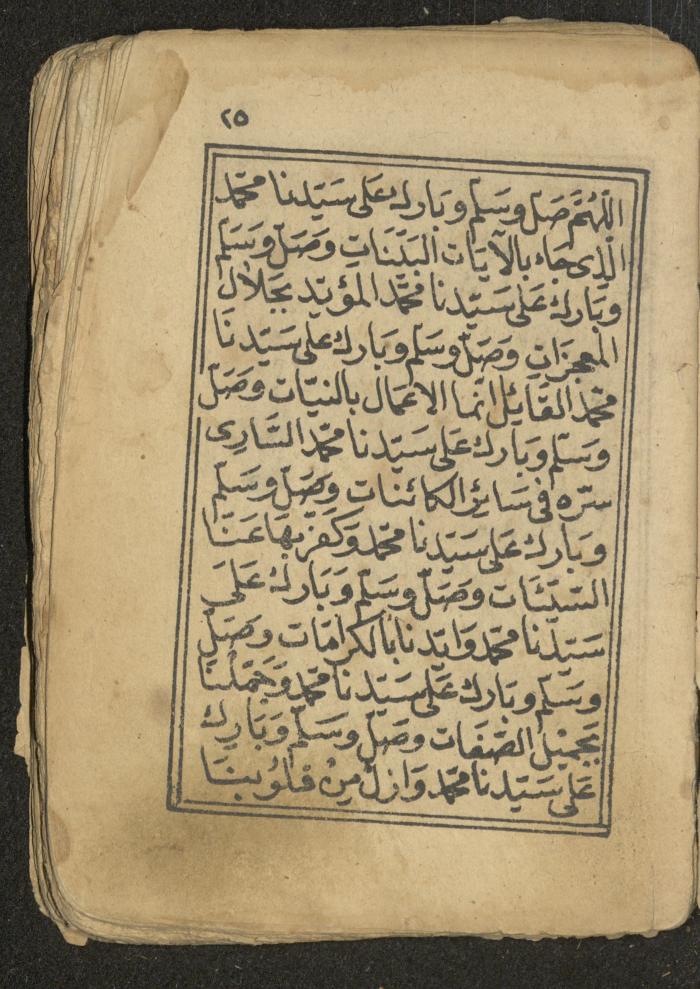 ٢٥
اللّٰهُمَّ صَلّ وسَلّم وبَارك عَلى سَيّدنا محمّد
الّذى جَاء بالآيَات البَيّنَاتِ وَصَلّ وسَلّم
وبَارك عَلى سَيّدنا محمّد المؤيّد بجَلَال
المعجزَاتِ وَصَلّ وسَلّم وبَارك على سَيّدنَا
محمّد القَائِل انّما الاعمَال بالنيّات وَصَلّ
وسَلّم وبَارك عَلى سَيّدنا محمّد السّارِى
سرّه فى سَائر الكائنات وصَلّ وسَلّم
وبَارك عَلى سَيّدنا محمّد وَكَفّر بهَا عَنّا
السّيّئَات وَصَلّ وسَلّم وَبَارك عَلَى
سَيّدنَا محمّد وَايّدنا بالكرامَات وصَلّ
وسَلّم وبَارك عَلى سَيّدنا محمّد وَجَمّلْنَا
بجَميْل الصّفَات وصَلّ وسَلّم وبَارِك
عَلى سَيّدنا محمّد وَازلْ مِنْ قلُوُبنَا